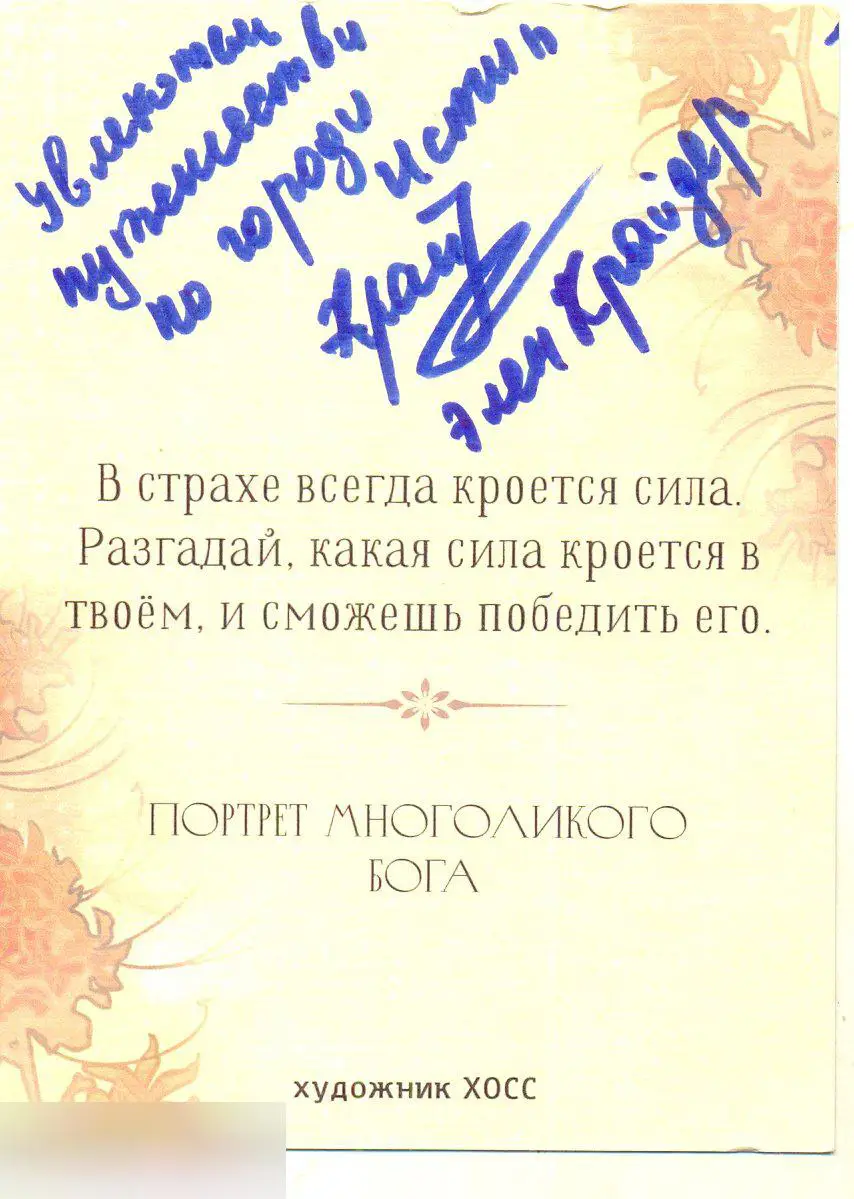 Увлекательн
путешестви
по городу Истин
Крайд
Элен Крайдер
В страхе всегда кроется сила.
Разгадай, какая сила кроется в
твоём, и сможешь победить его.
ПОРТРЕТ МНОГОЛИКОГО
БОГА
художник ХОСС